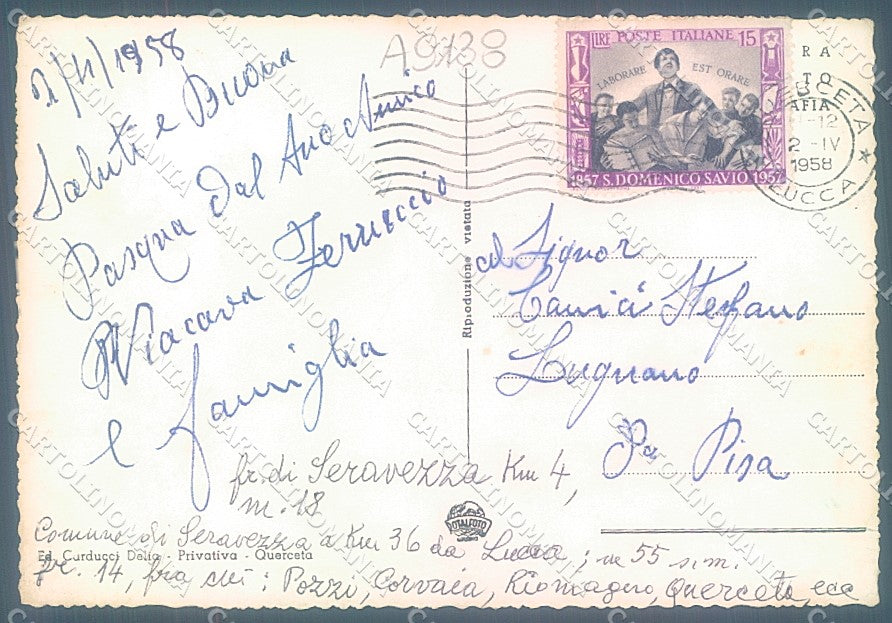 A9138
1/4/1958
Saluti e Buona
Pasqua Dal Tuo Amico
Viacava Ferruccio
e famiglia
LIRE POSTE ITALIANE 15
LABORARE EST ORARE
1857 S. DOMENICO SAVIO 1957
RA
TO
AFIA
QUERCETA
1-12
2-IV
1958
LUCCA
Riproduzione vietata
al Signor
Stefano
Lugnano
Pa Pisa
fr. di Seravezza Km 4,
m. 18
Comune di Seravezza a Km 36 da Lucca; m 55 s.m.
FOTALFOTO
Ed. Carducci Delia - Privativa - Querceta
fr. 14, fra cui: Pozzi, Corvaia, Riomagno, Querceta, ecc
CARTOLINOMANIA